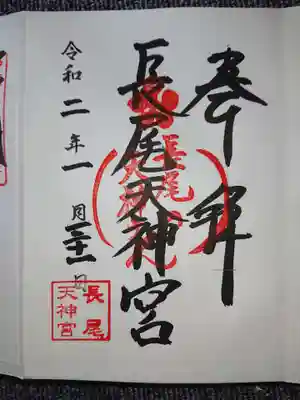 奉拝
長尾天神宮
令和二年一月三十一日
長尾
天神宮